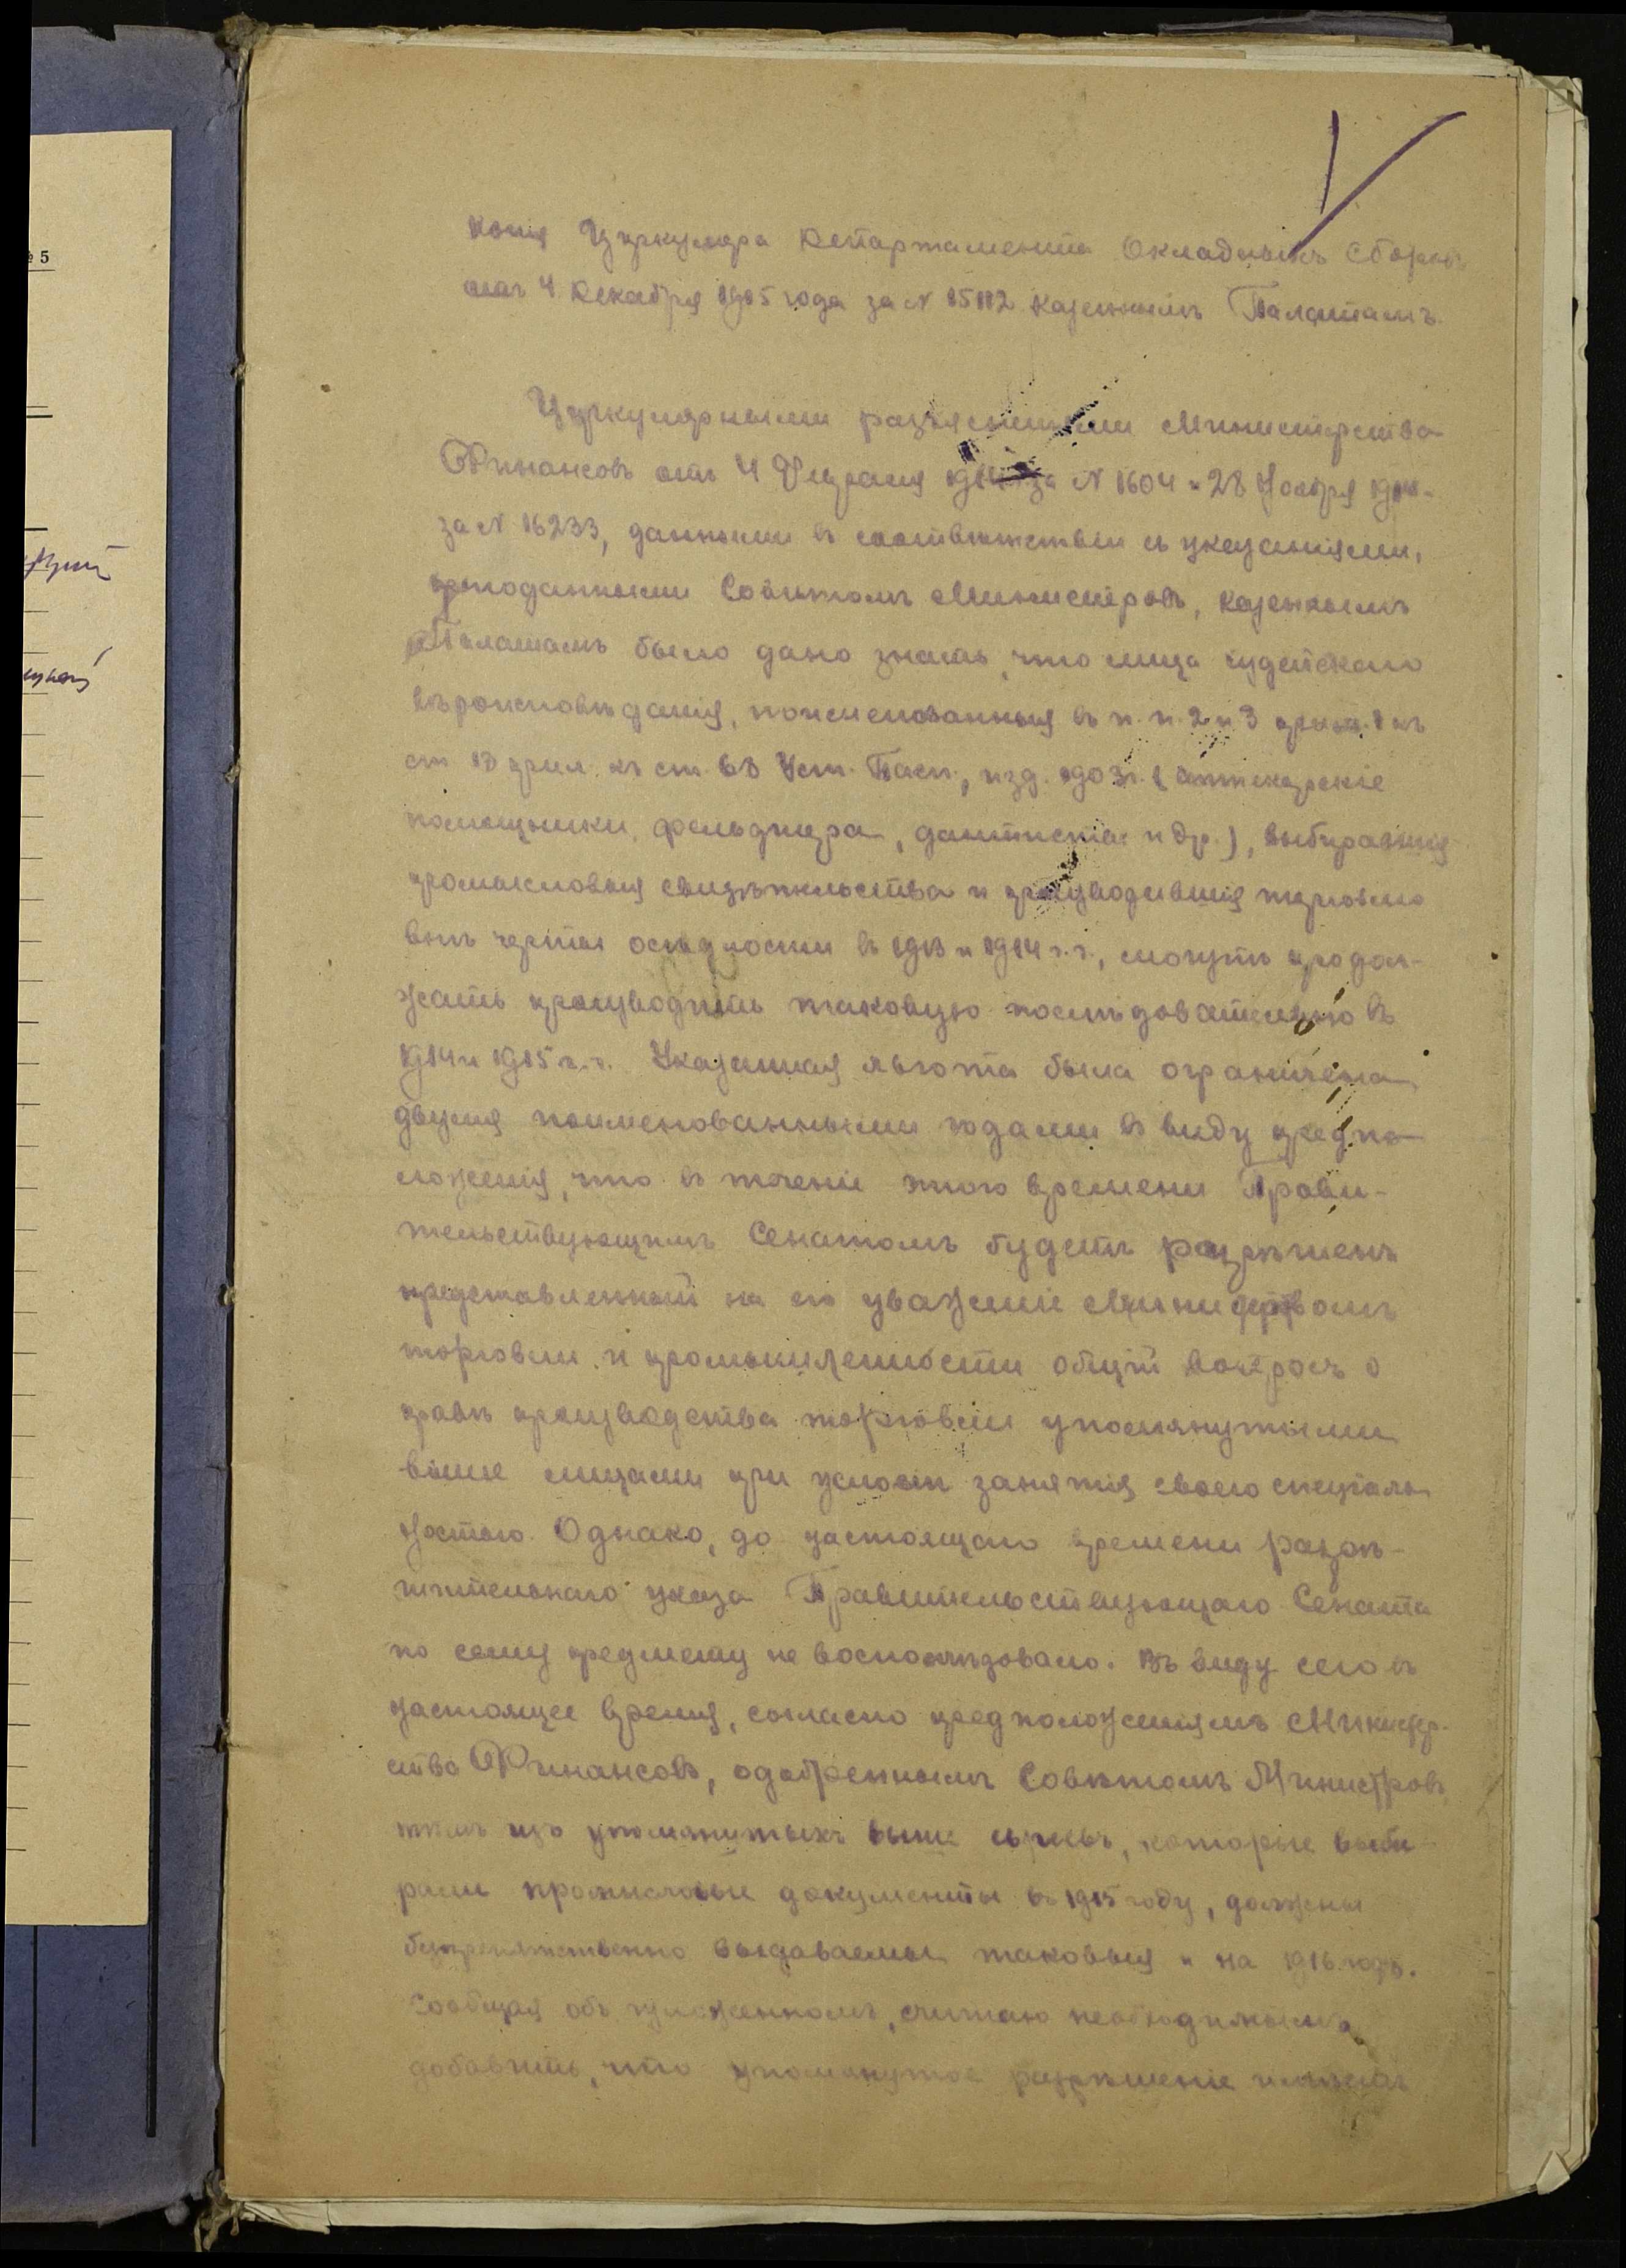 № 5
Копія Циркуляра Департамента Окладныхъ Сборовъ
отъ 4 Декабря 1915 года за N 15112 Казеннымъ Палатамъ.
Циркулярными разъясненіями Министерства
Финансовъ отъ 4 Февраля 1914 за N 1604 и 28 Ноября 1914
за N 16233, данными въ соотвѣтствіи съ указаніями,
преподанными Совѣтомъ Министровъ, Казеннымъ
Палатамъ было дано знать, что лица іудейскаго
вѣроисповѣданія, поименованныя въ п.п. 2 и 3 прим. 1 къ
ст 18 прил. къ ст. 68 Уст. Пасп., изд. 1903 г. (аптекарскіе
помощники, фельдшера, дантисты и др.), выбиравшія
промысловыя свидѣтельства и производившія торговлю
внѣ черты осѣдлости въ 1913 и 1914 г.г., могутъ продол-
жать производить таковую послѣдовательно въ
1914 и 1915 г.г. Указанная льгота была ограничена
двумя поименованными годами въ виду предпо-
ложенія, что въ теченіе этого времени Прави-
тельствующимъ Сенатомъ будетъ разрѣшенъ
представленный на его уваженіе Министерствомъ
торговли и промышленности общій вопросъ о
правѣ производства торговли упомянутыми
выше лицами при условіи занятія своею спеціаль-
ностью. Однако, до настоящаго времени разрѣ-
шительнаго указа Правительствующаго Сената
по сему предмету не воспослѣдовало. Въ виду сего въ
настоящее время, согласно предположеніямъ Министер-
ства Финансовъ, одобреннымъ Совѣтомъ Министровъ,
тѣмъ изъ упомянутыхъ выше лицъ, которые выби-
рали промысловые документы въ 1915 году, должны
безпрепятственно выдаваемы таковыя и на 1916 годъ.
Сообщая объ изложенномъ, считаю необходимымъ
добавить, что упомянутое разрѣшеніе